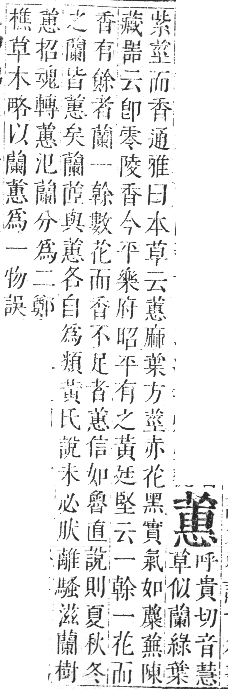 蕙
呼貴切音慧
草似蘭綠葉
紫莖而香通雅曰本草云蕙麻葉方莖赤花黑實氣如蘪蕪陳
藏器云卽零陵香今平樂府昭平有之黃廷堅云一榦一花而
香有餘者蘭一榦數花而香不足者蕙信如魯直說則夏秋冬
之蘭皆蕙矣蘭茝與蕙各自為類黃氏說未必肰離騷滋蘭樹
蕙招魂轉蕙氾蘭分為二鄭
樵草木略以蘭蕙為一物誤